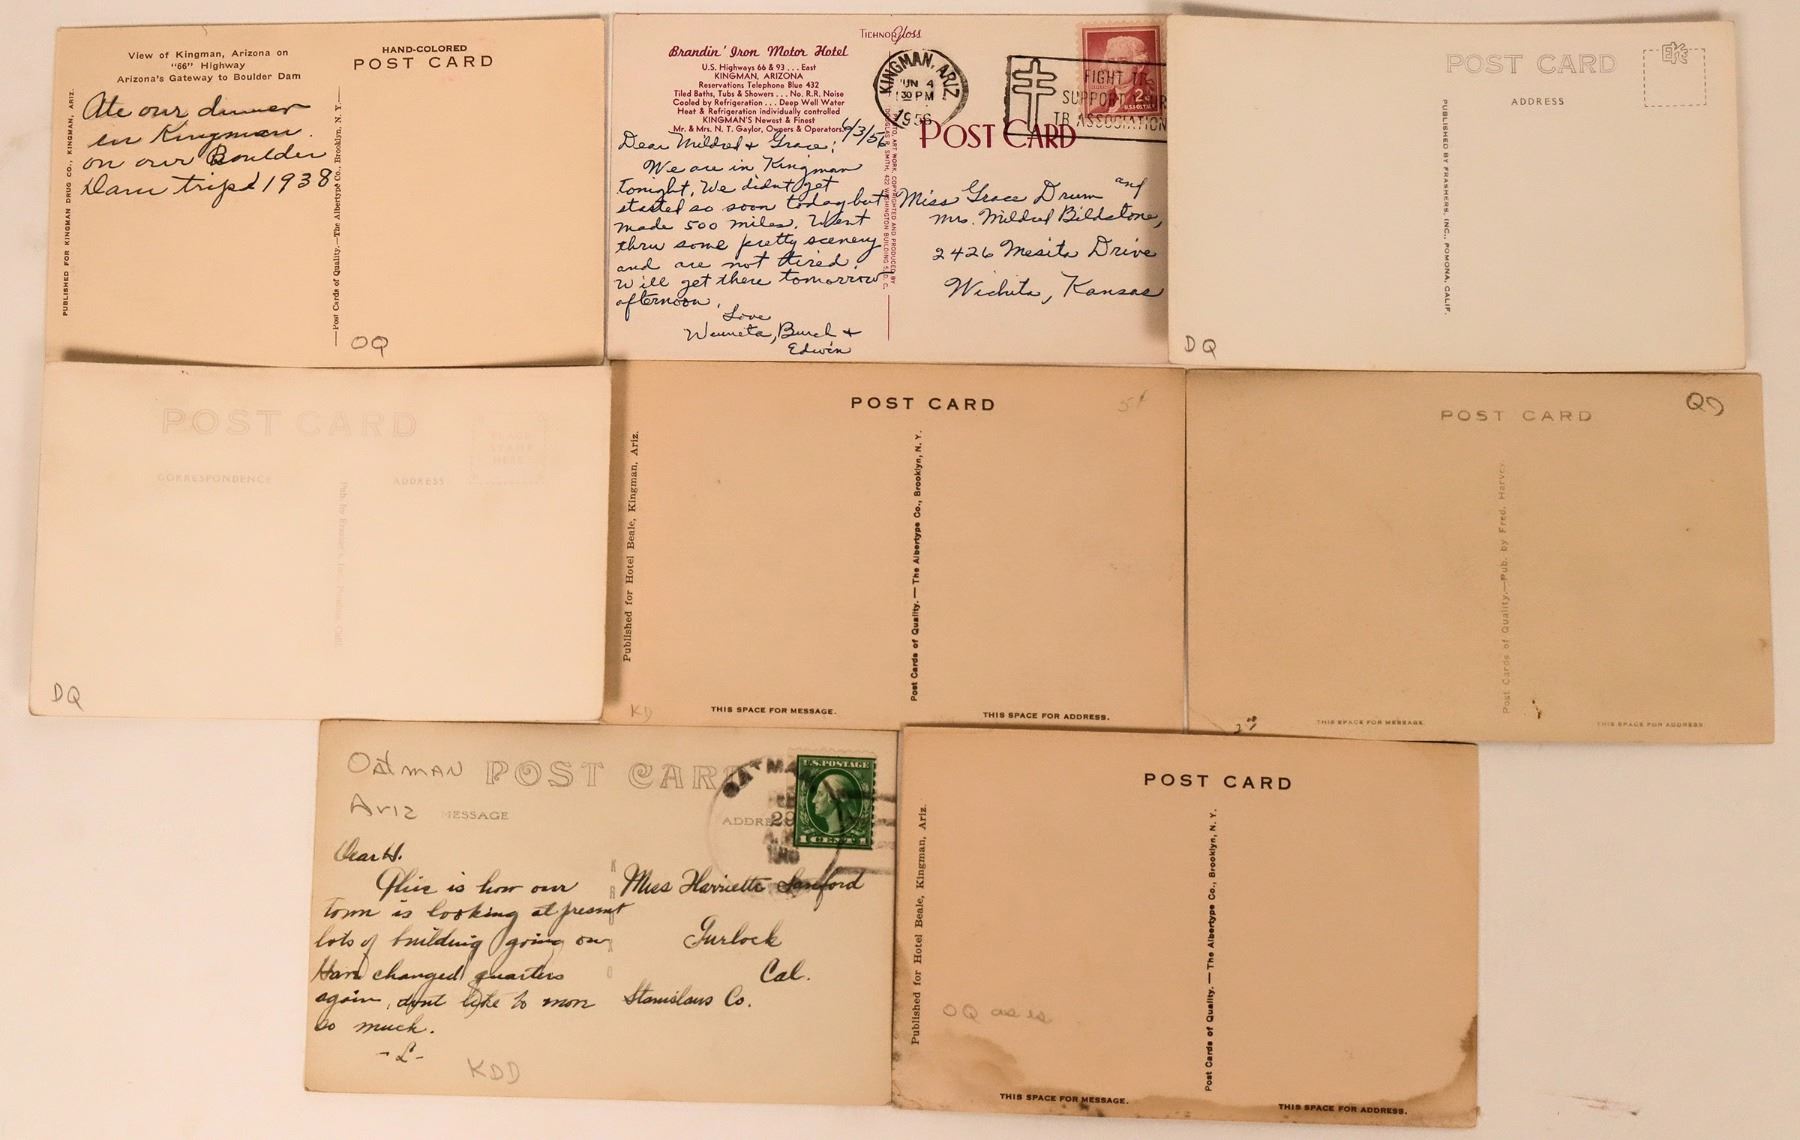 View of Kingman, Arizona on
"66" Highway
Arizona's Gateway to Boulder Dam
HAND-COLORED
POST CARD
Ate our dinner
in Kingman.
on our Boulder
Dam trip 1938
PUBLISHED FOR KINGMAN DRUG CO., KINGMAN, ARIZ.
—Post Cards of Quality.—The Albertype Co., Brooklyn, N. Y.—
OQ
TICHNOR Gloss
Brandin' Iron Motor Hotel
U.S. Highways 66 & 93 . . . East
KINGMAN, ARIZONA
Reservations Telephone Blue 432
Tiled Baths, Tubs & Showers . . . No. R.R. Noise
Cooled by Refrigeration . . . Deep Well Water
Heat & Refrigeration individually controlled
KINGMAN'S Newest & Finest
Mr. & Mrs. N. T. Gaylor, Owners & Operators
KINGMAN, ARIZ.
JUN 4
30 PM
1956
FIGHT TB
SUPPORT
TB ASSOCIATION
2¢
U.S. POSTAGE
POST CARD
6/3/56
Dear Mildred & Grace:
We are in Kingman
tonight. We didn't get
started so soon today but
made 500 miles. Went
thru some pretty scenery
and are not tired.
Will get there tomorrow
afternoon.
Love
Burch &
Edwin
Miss Grace Drum and
Mrs. Mildred Bildstone,
2426 Mesita Drive
Wichita, Kansas
POST CARD
ADDRESS
EKC
PUBLISHED BY FRASHERS, INC., POMONA, CALIF.
DQ
POST CARD
PLACE
STAMP
HERE
CORRESPONDENCE
ADDRESS
Pub. by Frasher's, Inc., Pomona, Calif.
DQ
POST CARD
5¢
Published for Hotel Beale, Kingman, Ariz.
Post Cards of Quality. — The Albertype Co., Brooklyn, N. Y.
KD
THIS SPACE FOR MESSAGE.
THIS SPACE FOR ADDRESS.
POST CARD
Post Cards of Quality.—Pub. by Fred. Harvey.
THIS SPACE FOR MESSAGE.
THIS SPACE FOR ADDRESS.
Oatman
Ariz
POST CARD
MESSAGE
ADDRESS
OATMAN
FEB
29
A.M.
1916
U.S. POSTAGE
1 CENT 1
Dear H.
This is how our
town is looking at present
lots of building going on
Have changed quarters
again, dont like to move
so much.
- L -
Miss Harriette Sanford
Turlock
Cal.
Stanislaus Co.
KDD
POST CARD
Published for Hotel Beale, Kingman, Ariz.
Post Cards of Quality. — The Albertype Co., Brooklyn, N. Y.
OQ as is
THIS SPACE FOR MESSAGE.
THIS SPACE FOR ADDRESS.